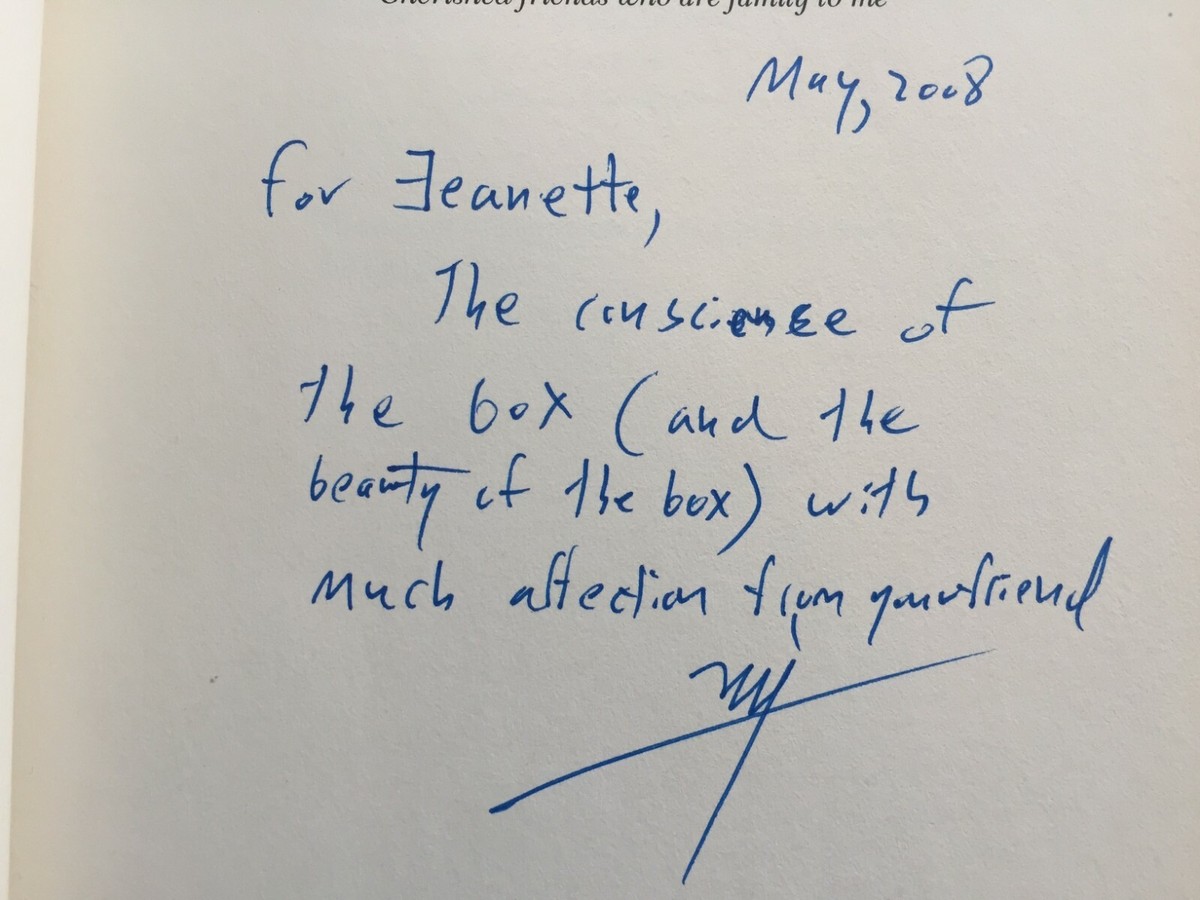 Cherished friends who are family to me
May, 2008
for Jeanette,
The conscience of
the box (and the
beauty of the box) with
much affection from your friend